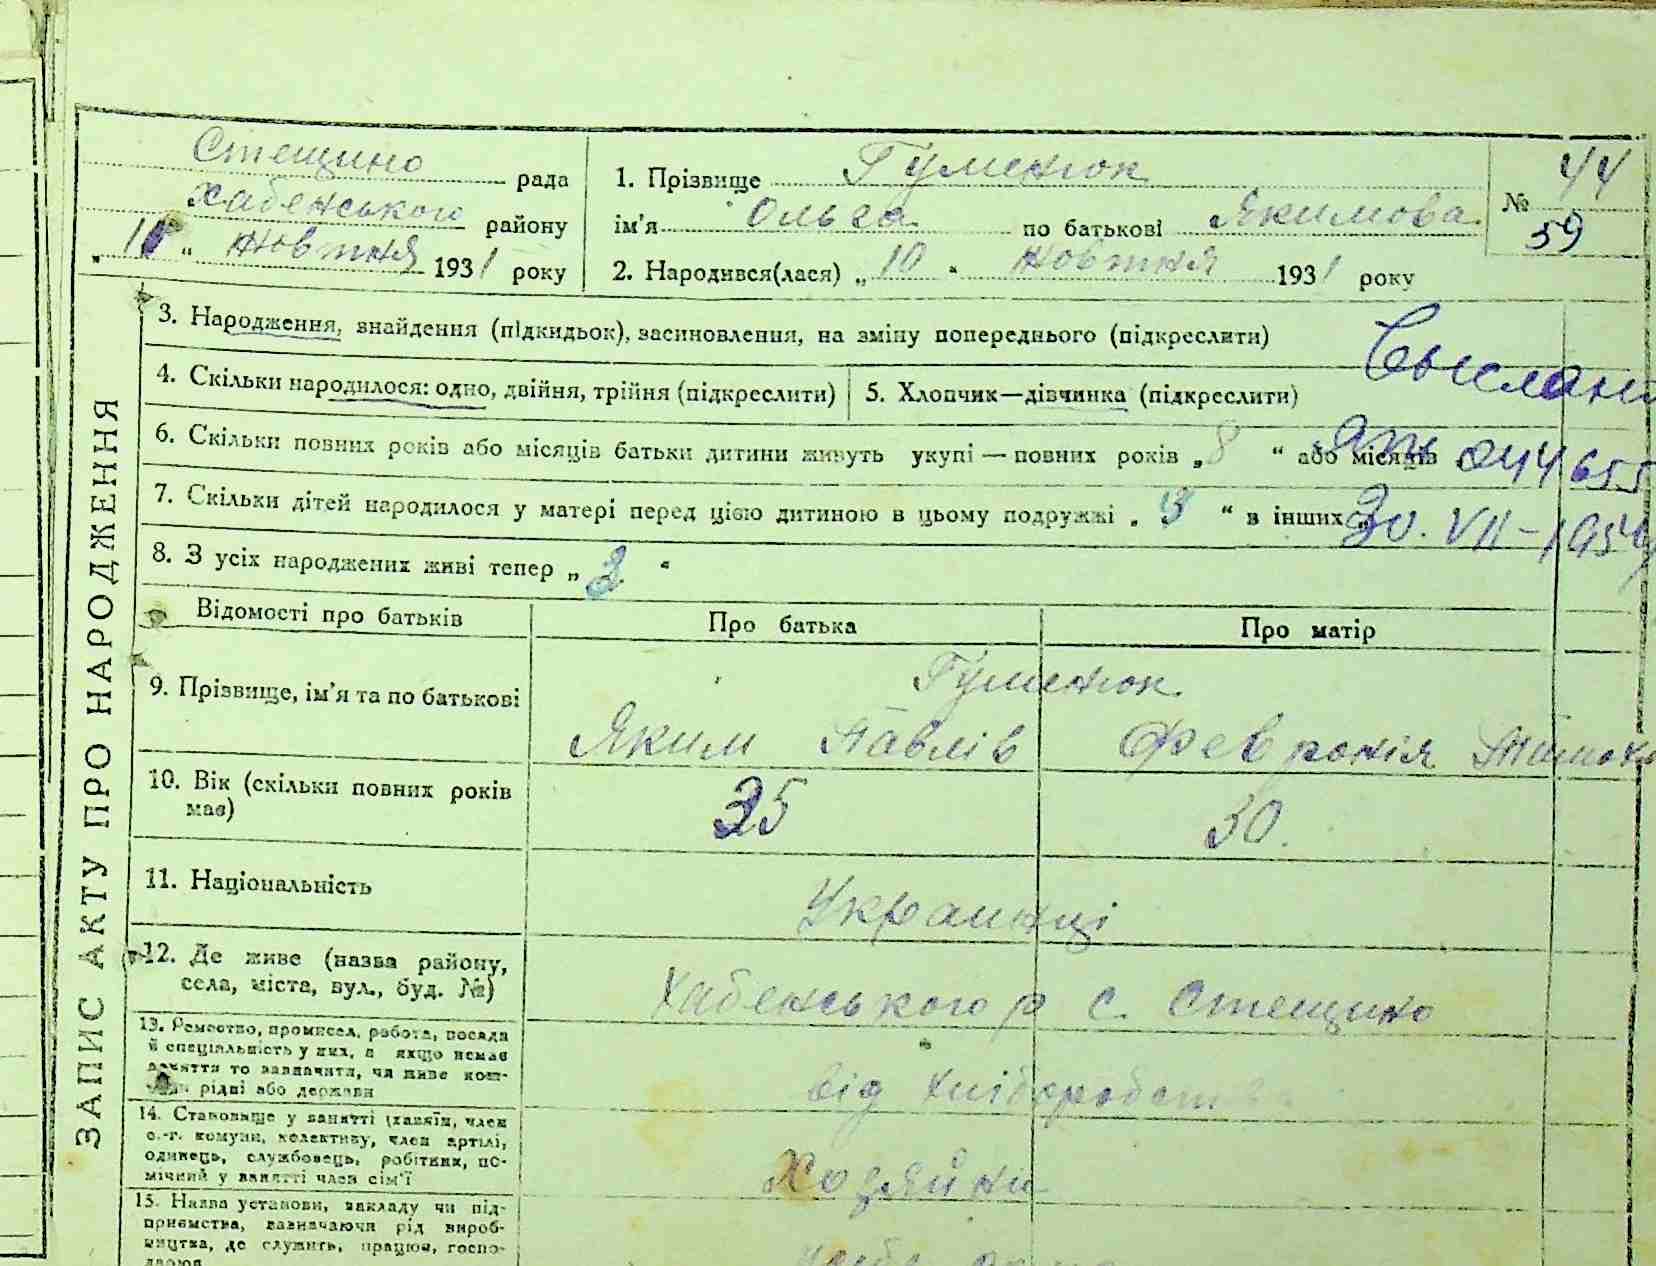 Стещино рада
Хабенського району
„ “ жовтня 1931 року
1. Прізвище Гуменюк
ім’я Ольга по батькові Якимова
2. Народився(лася) „ 10 “ жовтня 1931 року
№ 44
59
3. Народження, знайдення (підкидьок), засиновлення, на зміну попереднього (підкреслити)
4. Скільки народилося: одно, двійня, трійня (підкреслити)
5. Хлопчик—дівчинка (підкреслити)
6. Скільки повних років або місяців батьки дитини живуть укупі — повних років „ 8 “ або місяців
044655
7. Скільки дітей народилося у матері перед цією дитиною в цьому подружжі „ 3 “ в інших „
30. VII – 195
8. З усіх народжених живі тепер „ 3 “
ЗАПИС АКТУ ПРО НАРОДЖЕННЯ
Відомості про батьків
Про батька
Про матір
9. Прізвище, ім’я та по батькові
Гуменюк
Яким Павлів
Февронія
10. Вік (скільки повних років
має)
35
30.
11. Національність
Украинці
12. Де живе (назва району,
села, міста, вул., буд. №)
Хабенського р с. Стещино
13. Ремество, промисел, робота, посада
й спеціальність у них, а якщо немає
заняття то зазначити, чи живе кош-
рідні або держави
від хліборобства
14. Становище у занятті (хазяїн, член
с.-г. комуни, колективу, член артілі,
одинець, службовець, робітник, по-
мічний у занятті член сім’ї
Хозяйни
15. Назва установи, закладу чи під-
приємства, зазначаючи рід вироб-
ництва, де служить, працює, госпо-